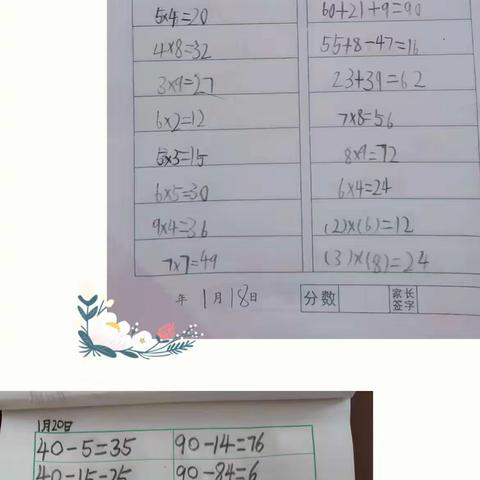 5×4=20 60+21+9=90
4×8=32 55+8-47=16
3×9=27 23+39=62
6×2=12 7×8=56
5×3=15 8×9=72
6×5=30 6×4=24
9×4=36 (2)×(6)=12
7×7=49 (3)×(8)=24
年 1月18日 分数 家长签字
1月20日
40-5=35 90-14=76
40-15=25 90-84=6